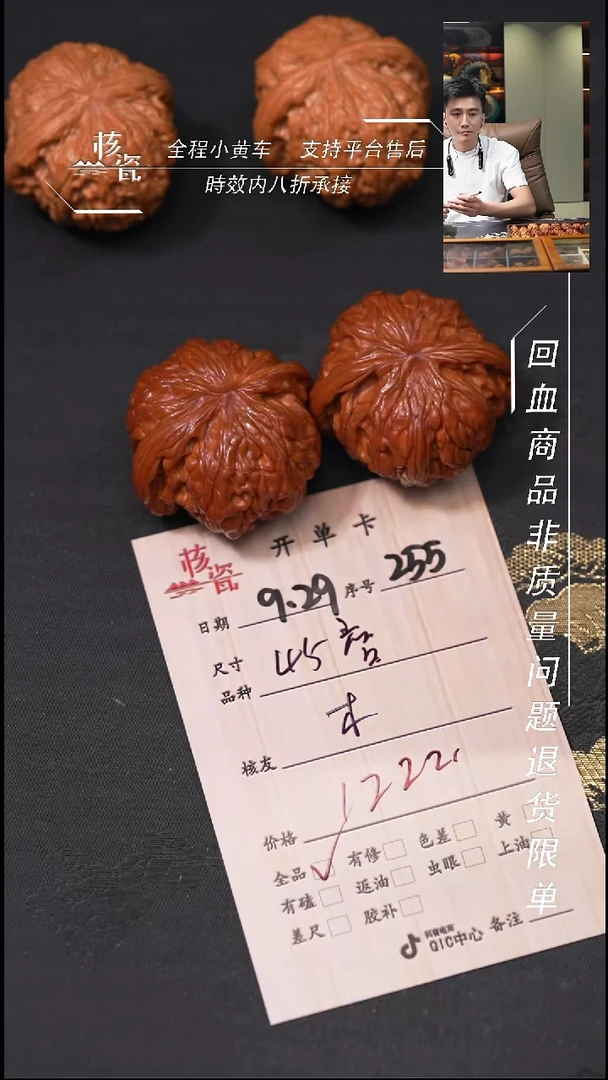 核瓷
全程小黄车 支持平台售后
時效内八折承接
回血商品非质量问题退货限单
核瓷
开单卡
日期 9.29 序号 255
尺寸 45
品种
核友
价格 1222
全品 ✓ 有修 色差 黄
有磕 返油 虫眼 上油
差尺 胶补
抖音电商
QIC中心 备注